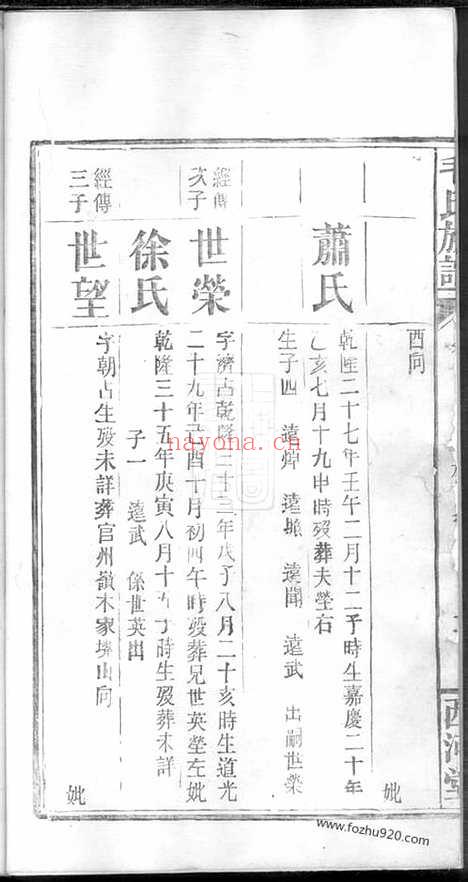 毛氏族譜
西河堂
酉向
妣
蕭氏
乾隆二十七年壬午二月十二子時生嘉慶二十年
乙亥七月十九申時歿葬夫塋右
生子四 遠焯 遠振 遠聞 遠武 出嗣世榮
經傳
次子
世榮
字濟占乾隆三十三年戊子八月二十亥時生道光
二十九年己酉十月初四午時歿葬兄世英塋左妣
徐氏
乾隆三十五年庚寅八月十五丁時生歿葬未詳
子一 遠武 係世英出
經傳
三子
世望
字朝占生歿未詳葬官州嶺木家塝山向
妣
nayona.cn
www.fozhu920.com